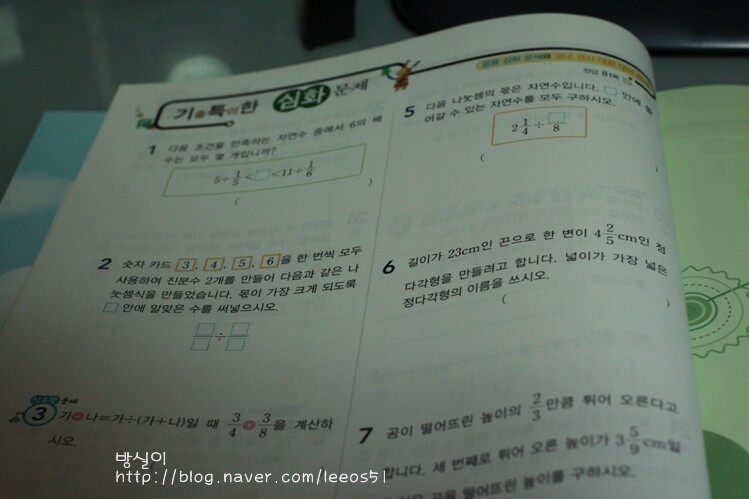 기출특이한 심화 문제
응용 심화 문제와
정답 81쪽
1 다음 조건을 만족하는 자연수 중에서 6의 배
수는 모두 몇 개입니까?
5÷1/5<□<11÷1/6
( )
2 숫자 카드 3, 4, 5, 6을 한 번씩 모두
사용하여 진분수 2개를 만들어 다음과 같은 나
눗셈식을 만들었습니다. 몫이 가장 크게 되도록
□ 안에 알맞은 수를 써넣으시오.
□/□÷□/□
3 가◎나=가÷(가+나)일 때 3/4◎3/8을 계산하
시오.
5 다음 나눗셈의 몫은 자연수입니다. □ 안에 들
어갈 수 있는 자연수를 모두 구하시오.
2 1/4÷□/8
( )
6 길이가 23cm인 끈으로 한 변이 4 2/5cm인 정
다각형을 만들려고 합니다. 넓이가 가장 넓은
정다각형의 이름을 쓰시오.
( )
7 공이 떨어뜨린 높이의 2/3만큼 튀어 오른다고
합니다. 세 번째로 튀어 오른 높이가 3 5/9cm일
공을 떨어뜨린 높이를 구하시오.
방실이
http://blog.naver.com/leeos51